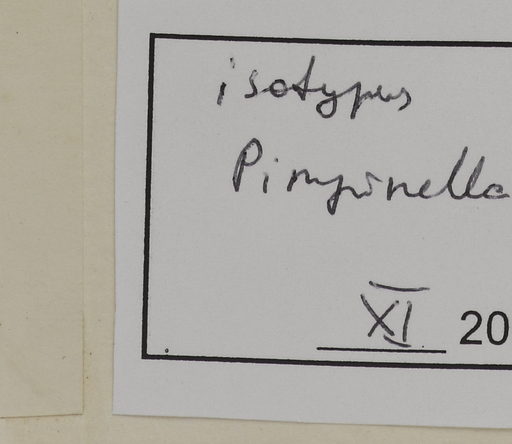 isotypus
Pimpinella
XI 20